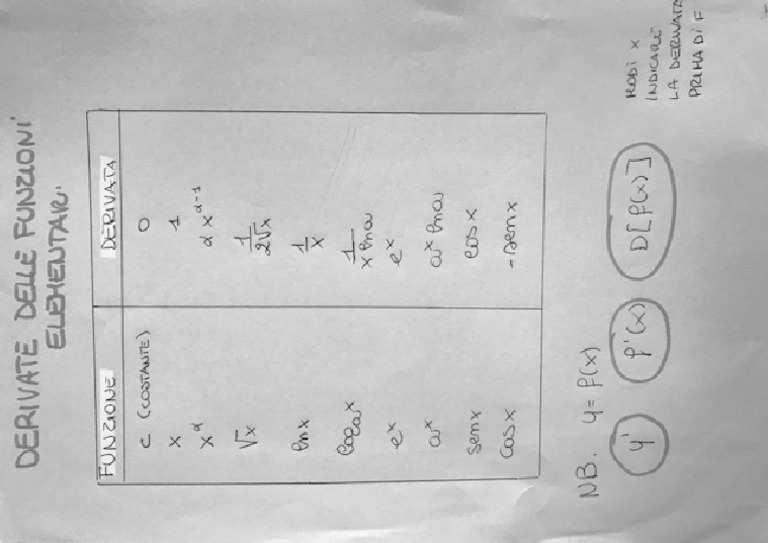 DERIVATE DELLE FUNZIONI
ELEMENTARI
FUNZIONE DERIVATA
c (COSTANTE) 0
x 1
x^α α x^(α-1)
√x 1/(2√x)
ln x 1/x
log_a x 1/(x ln a)
e^x e^x
a^x a^x ln a
sen x cos x
cos x - sen x
NB. y = f(x)
y' f'(x) D[f(x)]
MODI X
INDICARE
LA DERIVATA
PRIMA DI F